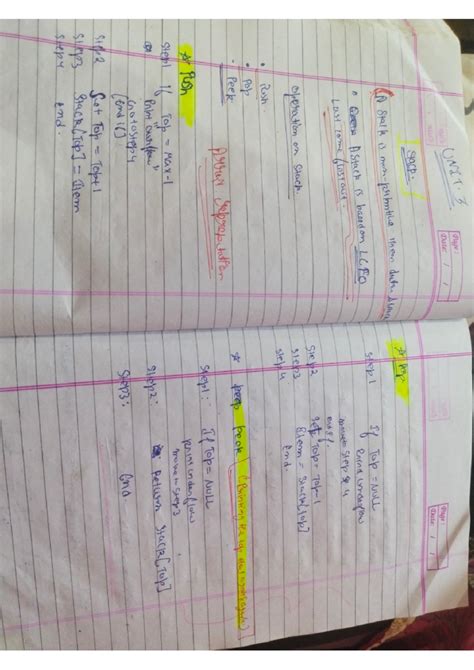 Page:
Date: / /
UNIT-3
STACK
A Stack is non-primitive linear data
A Stack is based on LCFO
Last come first out.
operation on stack
Push
Pop
Peek
Array representation
* Push
Step 1 If Top = Max-1
Print "overflow"
Goto step 4
(end if)
Step 2 Set Top = Top+1
Step 3 Stack[Top] = Item
Step 4 End.
Page:
Date: / /
* Pop
Step 1 If Top = NULL
Print underflow
step 4
end if
Step 2 Item = Stack[Top]
Step 3 Set Top = Top-1
Step 4 End.
* peek
Step 1: If Top = NULL
print underflow
move to step 3
Step 2: Return Stack[Top]
Step 3: End